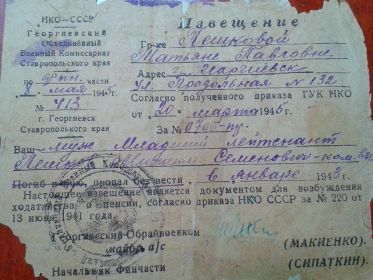 НКО—СССР
Георгиевский
Объединённый
Военный Комиссариат
Ставропольского края
по части
8 мая 1945 г.
№ 413
г. Георгиевск
Ставропольского края
Извещение
Гр-ке Пешковой
Татьяне Павловне
Адрес г. Георгиевск
ул. Продольная № 132
Согласно полученного приказа ГУК НКО
от "20" марта 1945 г.
За №
Ваш муж Младший лейтенант
Семенович
Погиб в бою, пропал без вести в январе 1943 г.
Настоящее извещение является документом для возбуждения
ходатайства о пенсии, согласно приказа НКО СССР за № 220 от
13 июня 1941 года.
Георгиевский Обрайвоенком
майор а/с (МАКИЕНКО.)
Начальник Финчасти (СИПАТКИН).